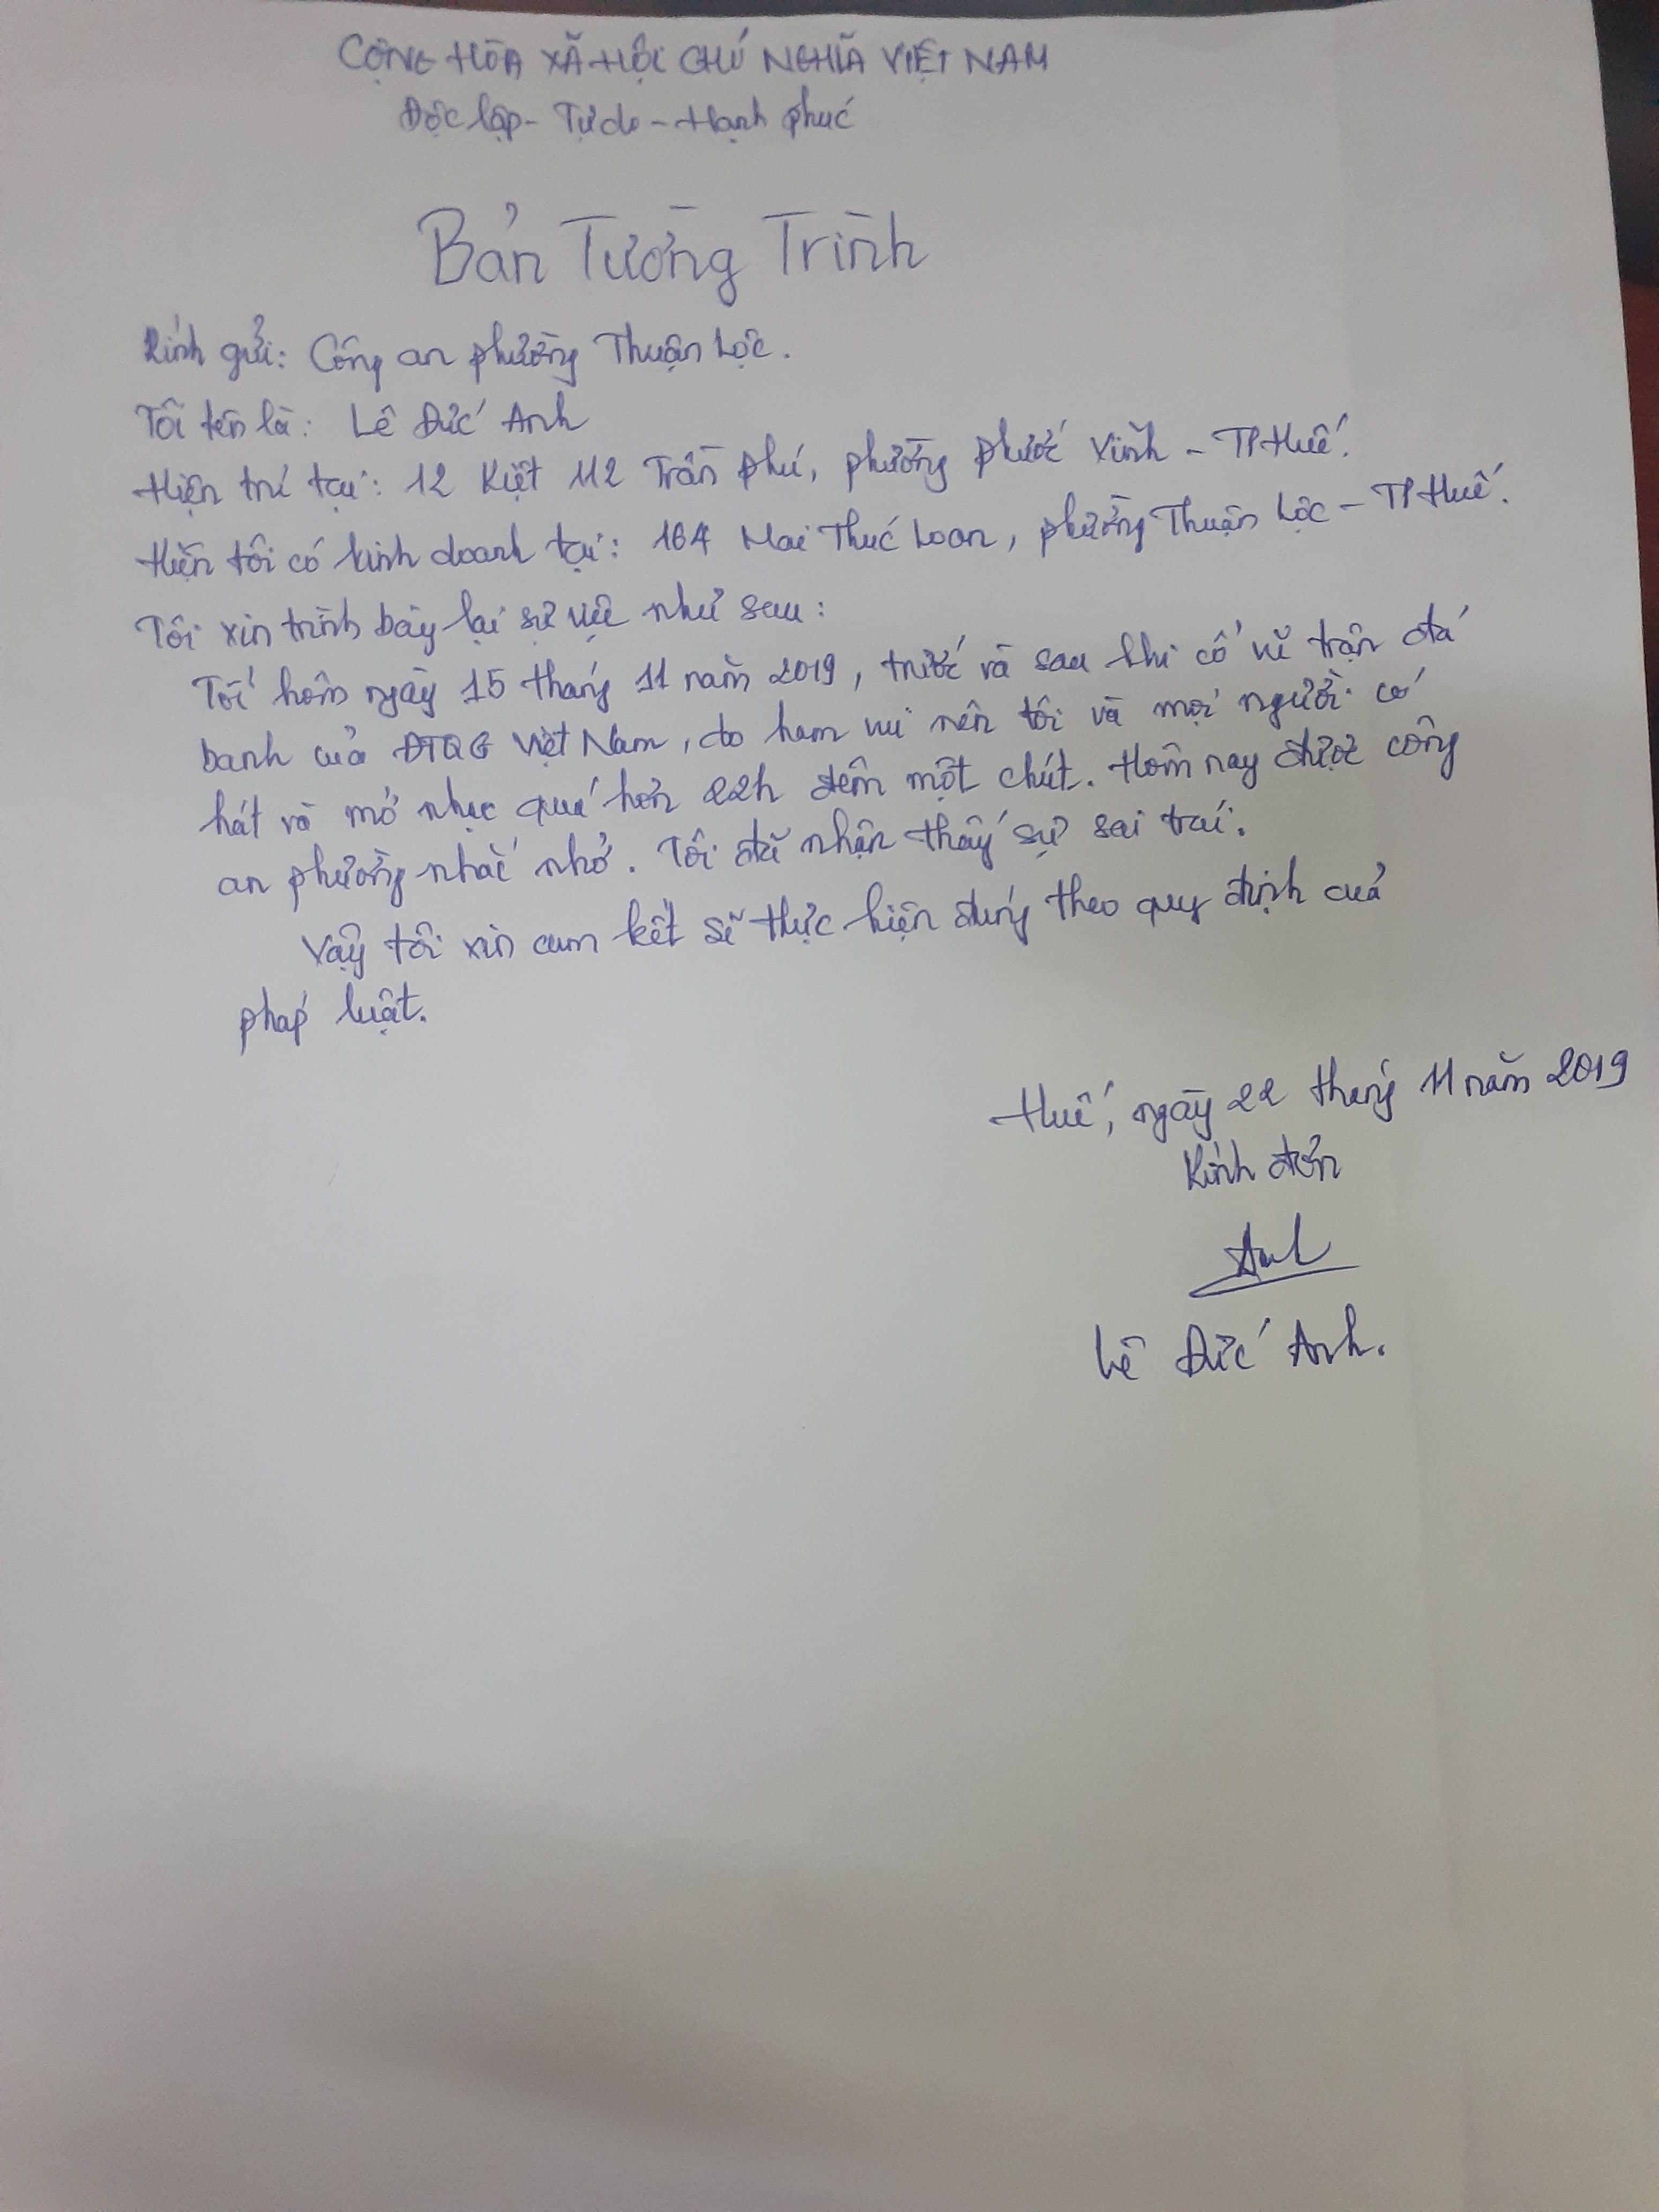 CỘNG HÒA XÃ HỘI CHỦ NGHĨA VIỆT NAM
Độc lập - Tự do - Hạnh phúc
Bản Tường Trình
Kính gửi: Công an phường Thuận Lộc.
Tôi tên là: Lê Đức Anh
Hiện trú tại: 12 Kiệt 112 Trần Phú, phường Phước Vĩnh - TP Huế.
Hiện tôi có kinh doanh tại: 164 Mai Thúc Loan, phường Thuận Lộc - TP Huế.
Tôi xin trình bày lại sự việc như sau:
Tối hôm ngày 15 tháng 11 năm 2019, trước và sau khi cổ vũ trận đá
banh của ĐTQG Việt Nam, do ham vui nên tôi và mọi người có
hát và mở nhạc quá hơn 22h đêm một chút. Hôm nay được công
an phường nhắc nhở. Tôi đã nhận thấy sự sai trái.
Vậy tôi xin cam kết sẽ thực hiện đúng theo quy định của
pháp luật.
Huế, ngày 22 tháng 11 năm 2019
Kính đơn
Anh
Lê Đức Anh.